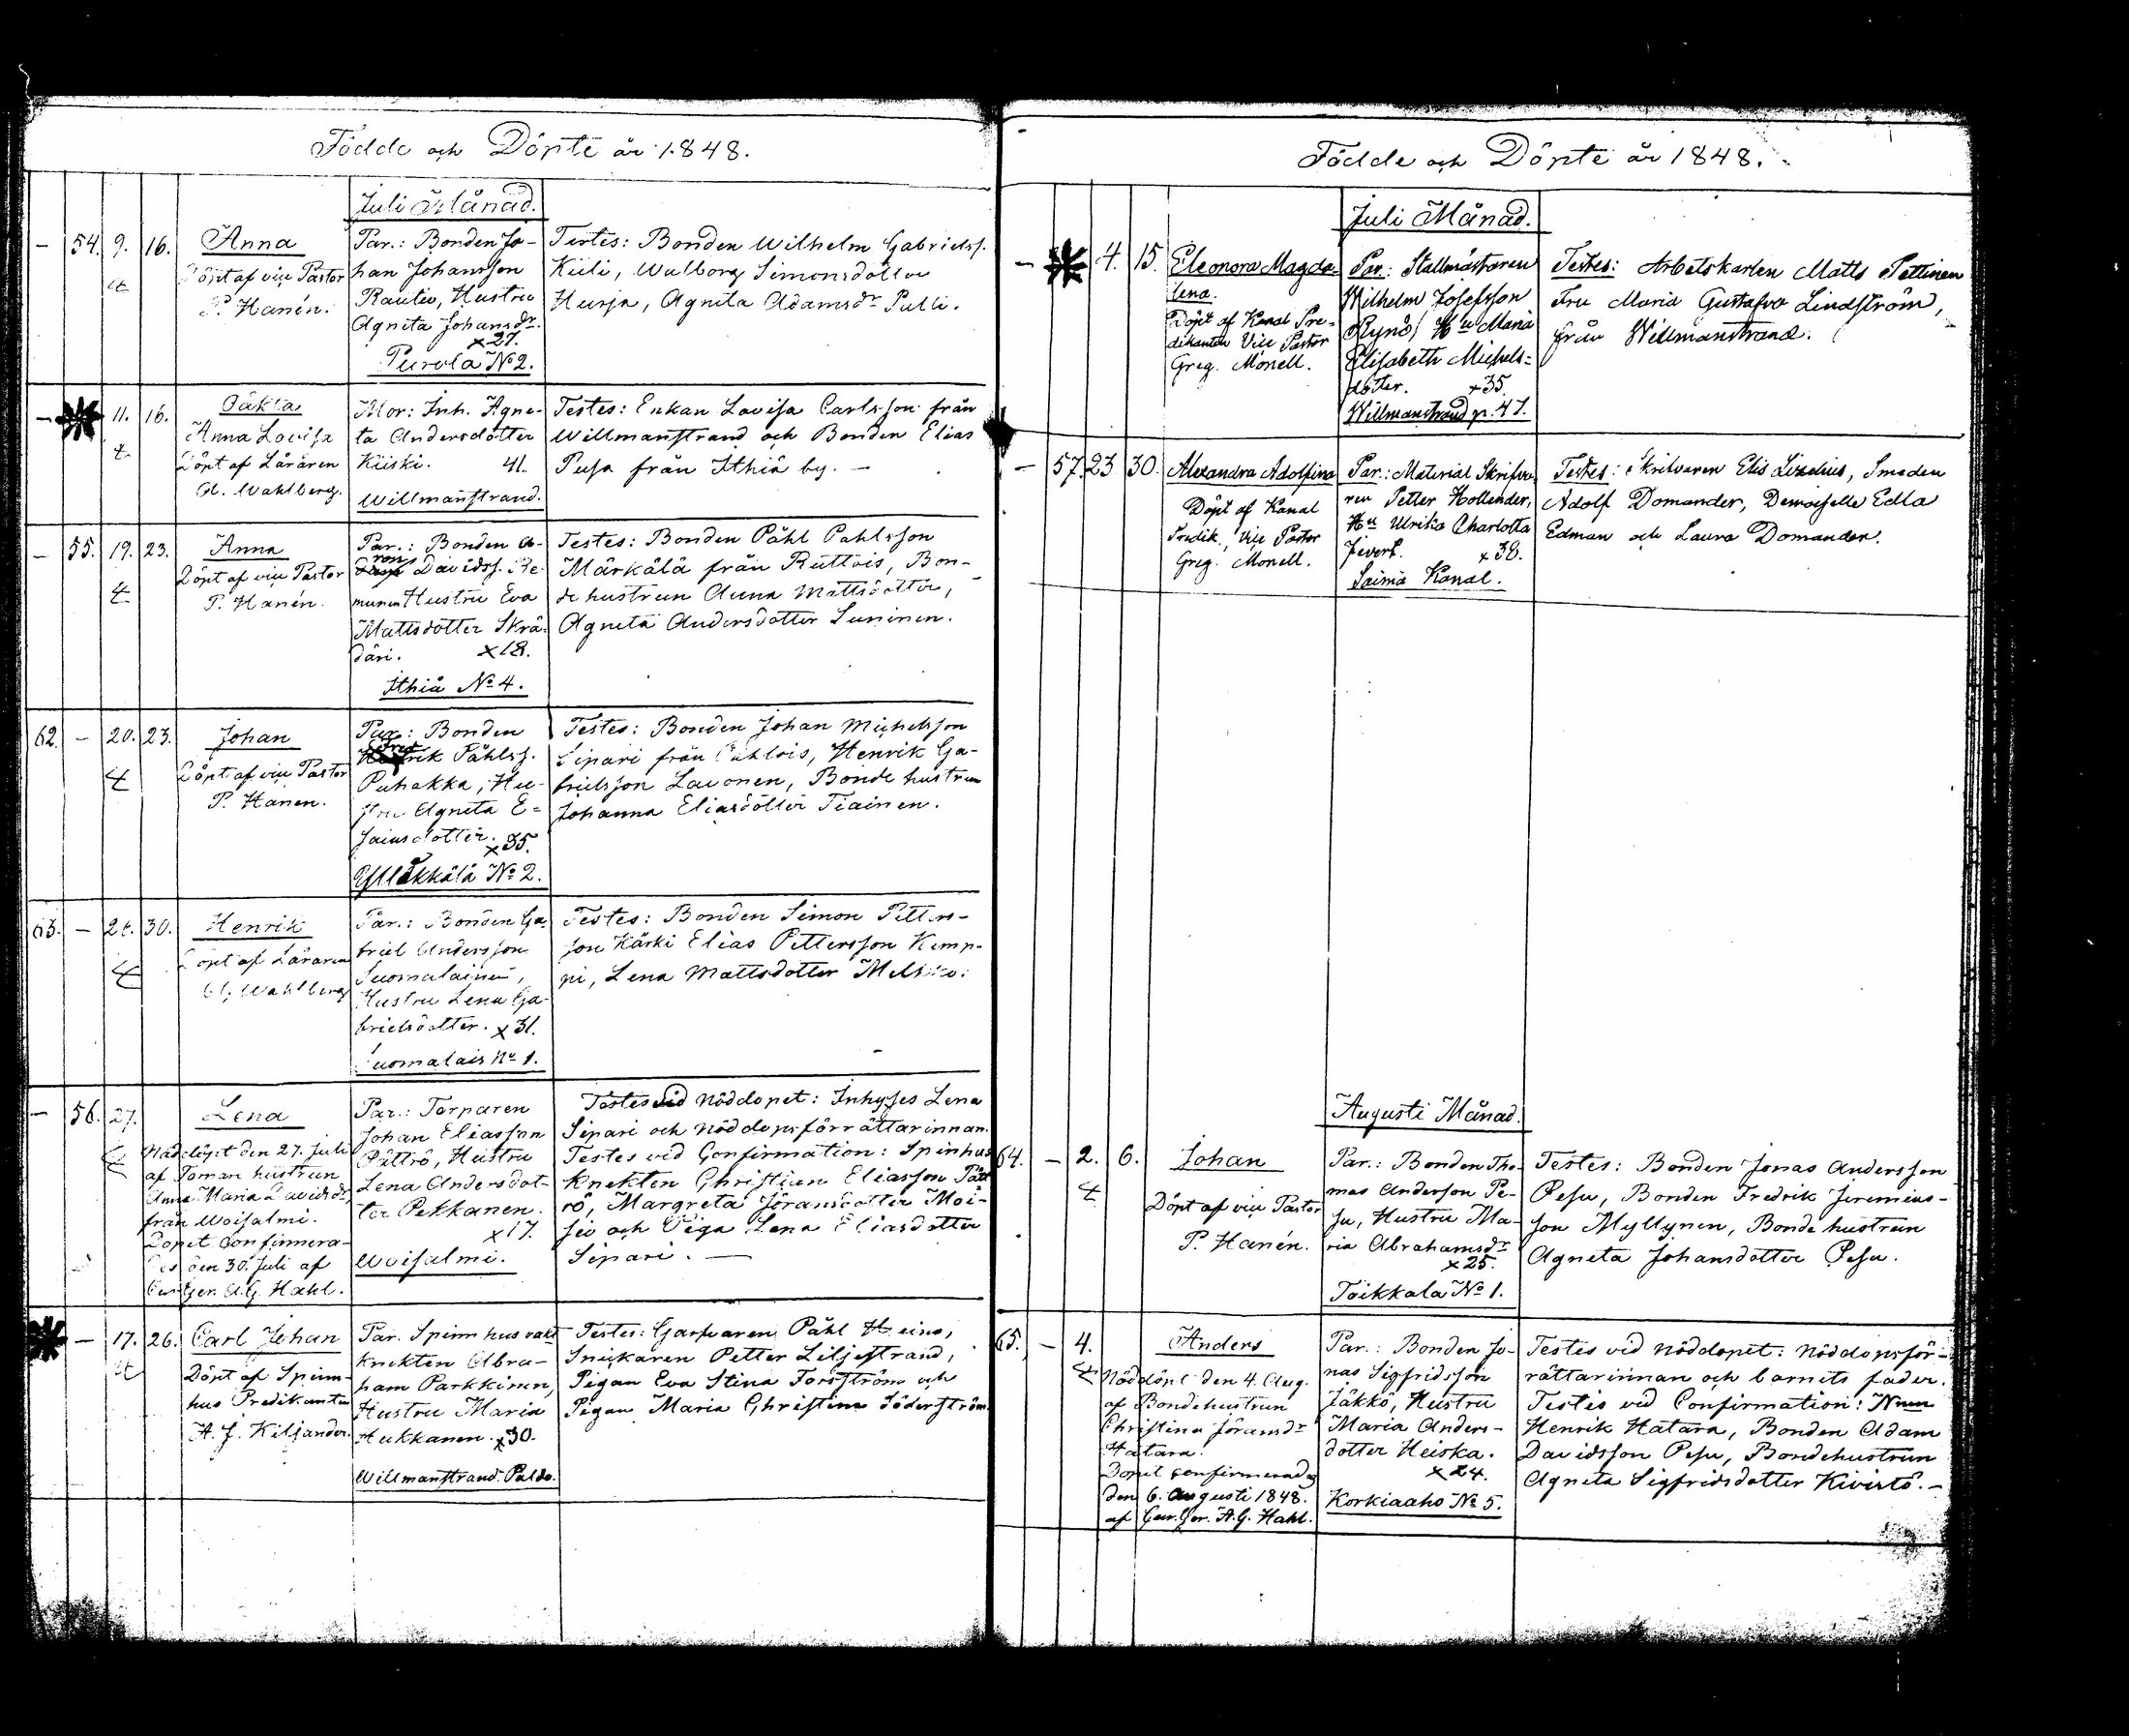 Födde och Döpte år 1848.
Juli Månad.
— 54. 9. 16. Anna
Döpt af vice Pastor
P. Hanén.
Par.: Bonden Jo-
han Johansson
Rautio, Hustru
Agneta Johansdr.
x27.
Purola No 2.
Testes: Bonden Wilhelm Gabrielss.
Kiili, Walborg Simonsdotter
Hurja, Agneta Adamsdr Pulli.
— 11. 16. Oäkta
Anna Lovisa
Döpt af Läraren
A. Wahlberg.
Mor: Inh. Agne-
ta Andersdotter
Kiiski. 41.
Willmanstrand.
Testes: Enkan Lovisa Carlsson från
Willmanstrand och Bonden Elias
Pusa från Ithiä by. —
— 55. 19. 23. Anna
Döpt af vice Pastor
P. Hanén.
Par.: Bonden A-
ron Davidss.
Hustru Eva
Mattsdotter Skrä-
däri. x18.
Ithiä No 4.
Testes: Bonden Påhl Pahlsson
Märkälä från Ruttois, Bon-
de hustrun Anna Mattsdotter,
Agneta Andersdotter Suninen.
62. — 20. 23. Johan
Döpt af vice Pastor
P. Hanen.
Par.: Bonden
Påhlss.
Puhakka, Hu-
stru Agneta E-
saiusdotter. x35.
Yllikkälä No 2.
Testes: Bonden Johan Michelsson
Sipari från Pahlois, Henrik Ga-
brielsson Lavonen, Bonde hustrun
Johanna Eliasdotter Tiainen.
63. — 24. 30. Henrik
Döpt af Läraren
A. Wahlberg
Par.: Bonden Ga-
briel Andersson
Suomalainen,
Hustru Lena Ga-
brielsdotter. x31.
Suomalais No 1.
Testes: Bonden Simon Petters-
son Kärki Elias Pettersson Kemp-
pi, Lena Mattsdotter
— 56. 27. Lena
Nöddöpt den 27. Juli
af Torpare hustrun
Anna Maria Davidsdr,
från Woisalmi.
Dopet Confirmera-
des den 30. Juli af
A.G. Hahl.
Par.: Torparen
Johan Eliasson
Pättrö, Hustru
Lena Andersdot-
ter Pekkanen.
x17.
Woisalmi.
Testes vid nöddopet: Inhyses Lena
Sipari och nöddopsförrättarinnan.
Testes vid Confirmation: Spinhus
knekten Christian Eliasson Pätt-
rö, Margreta Jöransdotter Moi-
sio och Piga Lena Eliasdotter
Sipari. —
— 17. 26. Carl Johan
Döpt af Spinn-
hus Predikanten
H. J. Kiljander.
Par. Spinn hus vakt
knekten Abra-
ham Parkkinen,
Hustru Maria
Hukkanen. x30.
Willmanstrand Paldo.
Testes: Garfvaren Påhl Heino,
Snickaren Petter Liljestrand,
Pigan Eva Stina Forsström och
Pigan Maria Christina Söderström.
Födde och Döpte år 1848.
Juli Månad.
— 4. 15. Eleonora Magda-
lena.
Döpt af Kanal Pre-
dikanten Vice Pastor
Greg. Monell.
Par.: Stallmästaren
Wilhelm Josefsson
Rynö, Hu Maria
Elisabeth Michels-
dotter. x35.
Willmanstrand p. 47.
Testes: Arbetskarlen Matts Pettinen
Fru Maria Gustafva Lindström,
från Willmanstrand.
— 57. 23. 30. Alexandra Adolfina
Döpt af Kanal
Predik., Vice Pastor
Greg. Monell.
Par.: Material Skrifva-
ren Petter Hollender,
Hu Ulrika Charlotta
Sivert. x38.
Saima Kanal.
Testes: Skrifvaren Elis Lizelius, Smeden
Adolf Domander, Demoiselle Edla
Edman och Laura Domander.
Augusti Månad.
64. — 2. 6. Johan
Döpt af vice Pastor
P. Hanén.
Par.: Bonden Tho-
mas Andersson Pe-
su, Hustru Ma-
ria Abrahamsdr
x25.
Toikkala No 1.
Testes: Bonden Jonas Andersson
Pesu, Bonden Fredrik Jeremias-
son Myllynen, Bonde hustrun
Agneta Johansdotter Pesu.
65. — 4. Anders
Nöddöpt den 4. Aug.
af Bondehustrun
Christina Jöransdr
Hatara.
Dopet confirmerades
den 6. Augusti 1848.
af A.G. Hahl.
Par.: Bonden Jo-
nas Sigfridsson
Jäkkö, Hustru
Maria Anders-
dotter Heiska.
x24.
Korkiaaho No 5.
Testes vid nöddopet: nöddopsför-
rättarinnan och barnets fader.
Testes vid Confirmation:
Henrik Hatara, Bonden Adam
Davidsson Pesu, Bondehustrun
Agneta Sigfridsdotter Kivistö. —